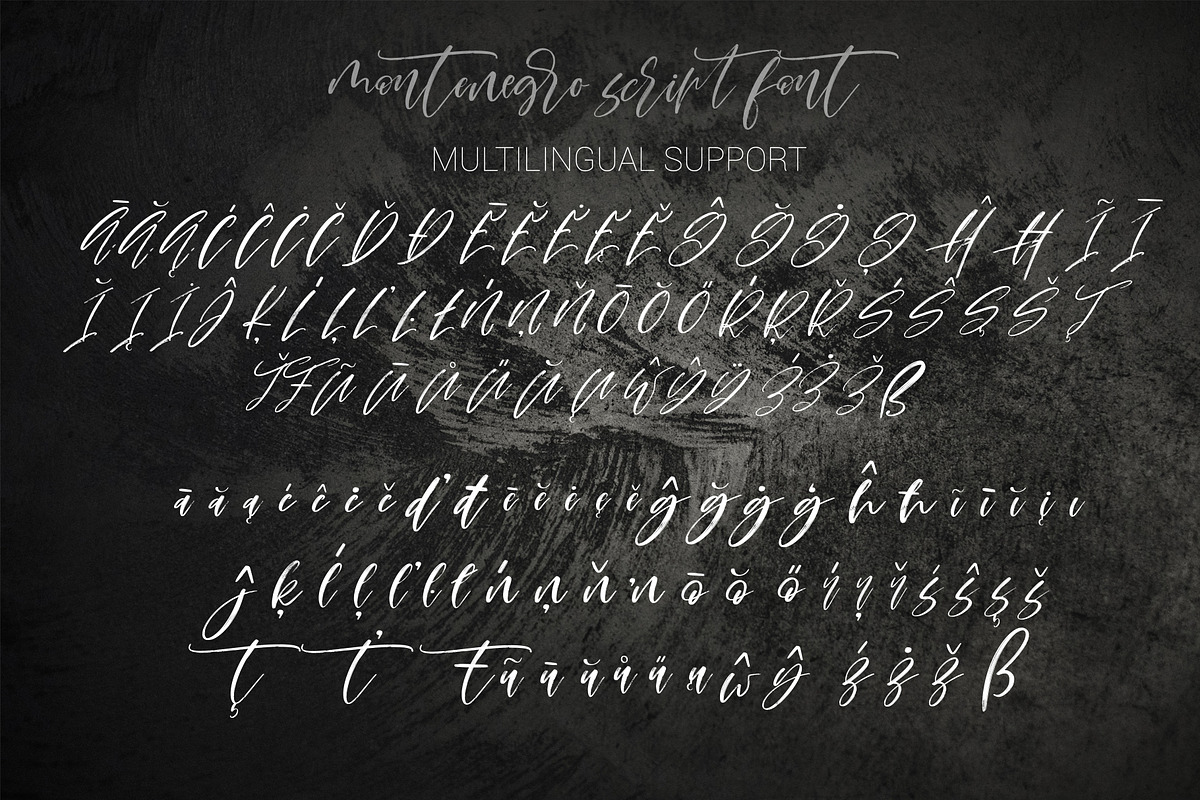 montenegro script font
MULTILINGUAL SUPPORT
Ā Ă Ą Ć Ĉ Ċ Č Ď Đ Ē Ĕ Ė Ę Ě Ĝ Ğ Ġ Ģ Ĥ Ħ Ĩ Ī
Ĭ Į İ Ĵ Ķ Ĺ Ļ Ľ Ŀ Ł Ń Ņ Ň Ō Ŏ Ő Ŕ Ŗ Ř Ś Ŝ Ş Š Ţ
Ť Ŧ Ũ Ū Ů Ű Ŭ Ų Ŵ Ŷ Ÿ Ź Ż Ž ß
ā ă ą ć ĉ ċ č ď đ ē ĕ ė ę ě ĝ ğ ġ ģ ĥ ħ ĩ ī ĭ į ı
ĵ ķ ĺ ļ ľ ŀ ł ń ņ ň ŉ ō ŏ ő ŕ ŗ ř ś ŝ ş š
ţ ť ŧ ũ ū ŭ ů ű ų ŵ ŷ ź ż ž ß